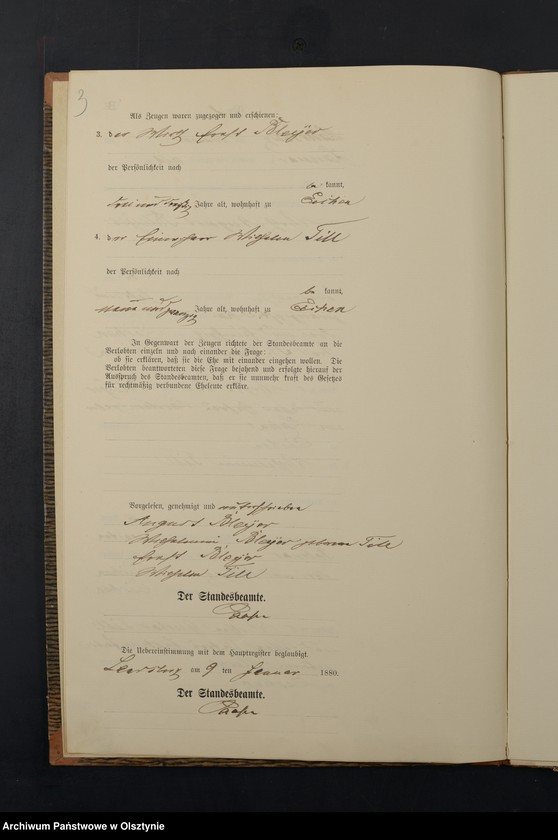 3
Als Zeugen waren zugezogen und erschienen:
3. der Wirth Ernst Bleyer
der Persönlichkeit nach
be kannt,
Jahre alt, wohnhaft zu
4. der Wilhelm Till
der Persönlichkeit nach
be kannt,
neun und zwanzig Jahre alt, wohnhaft zu
In Gegenwart der Zeugen richtete der Standesbeamte an die
Verlobten einzeln und nach einander die Frage:
ob sie erklären, daß sie die Ehe mit einander eingehen wollen. Die
Verlobten beantworteten diese Frage bejahend und erfolgte hierauf der
Ausspruch des Standesbeamten, daß er sie nunmehr kraft des Gesetzes
für rechtmäßig verbundene Eheleute erkläre.
Vorgelesen, genehmigt und unterschrieben
August Bleyer
Bleyer geborne Till
Ernst Bleyer
Wilhelm Till
Der Standesbeamte.
Die Uebereinstimmung mit dem Hauptregister beglaubigt.
am 9 ten Januar 1880.
Der Standesbeamte.
Archiwum Państwowe w Olsztynie